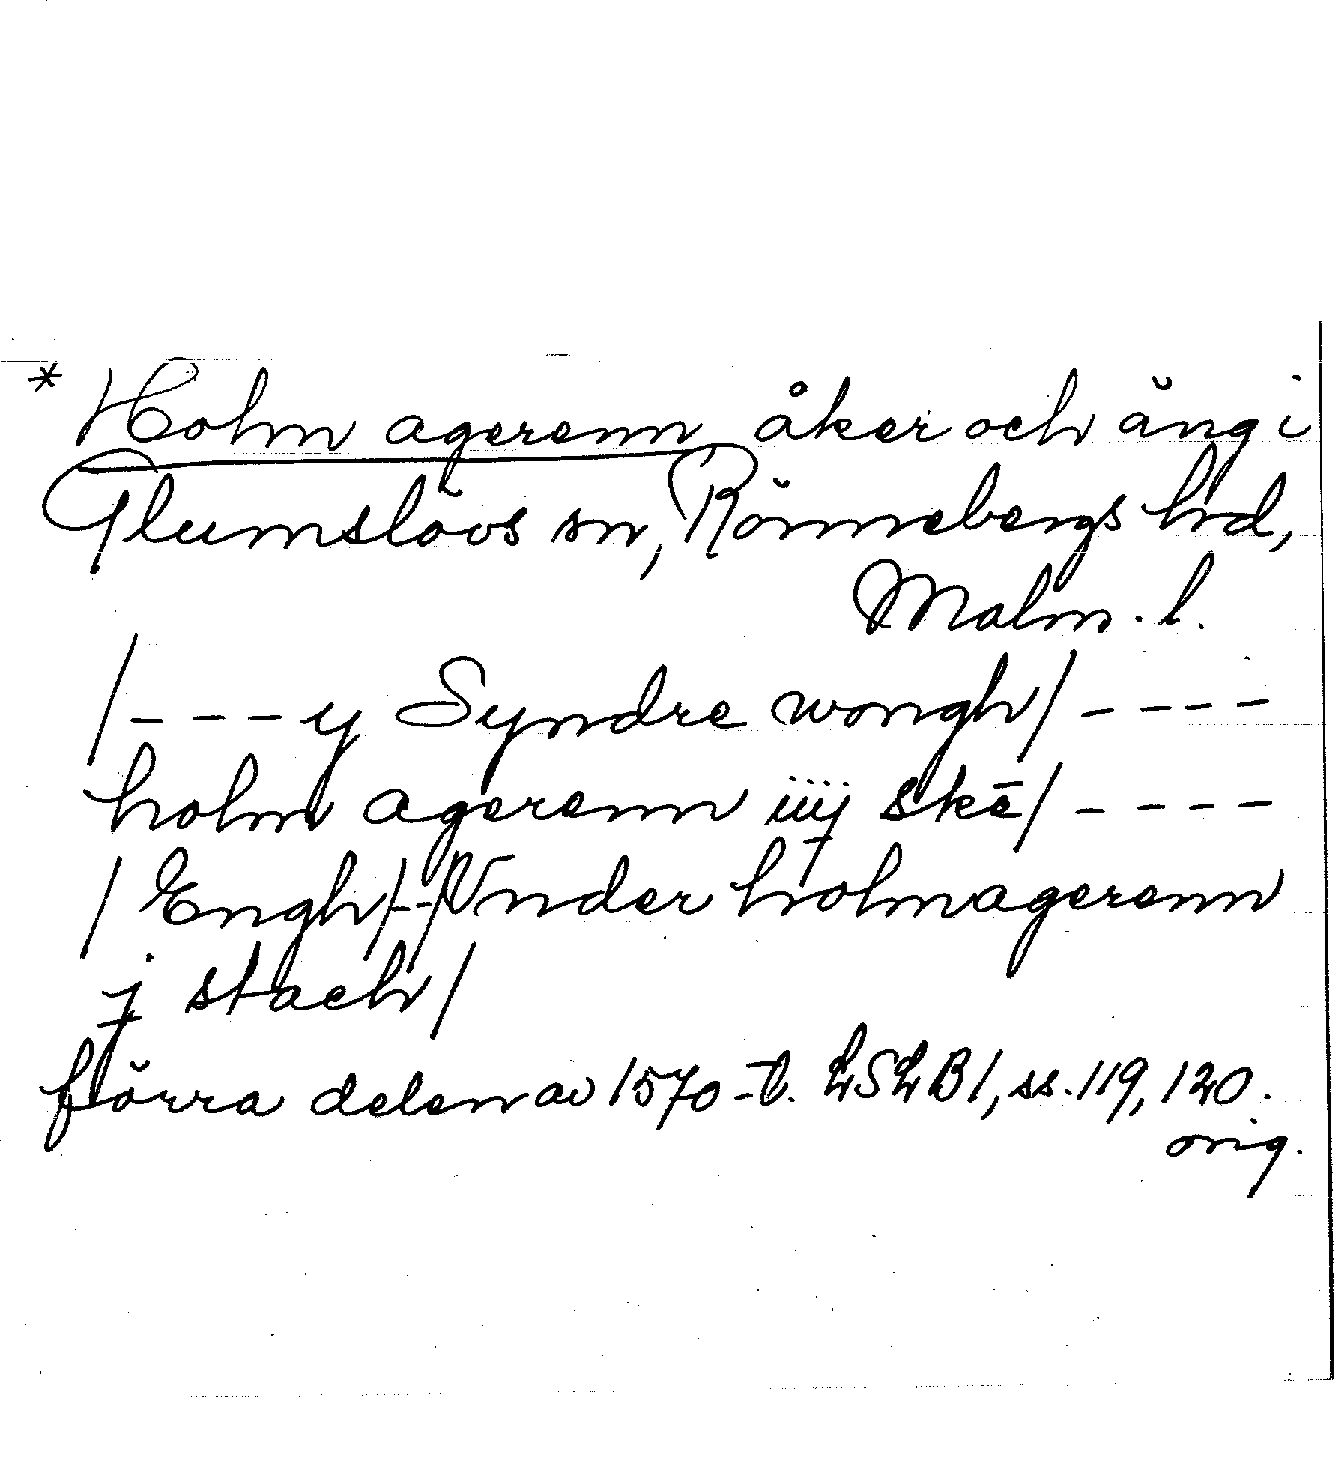 * Holm agerenn, åker och äng i
Glumslövs sn, Rönnebergs hrd,
Malm. l.
/---y Syndre wongh/----
holm agerenn iiij skē/----
/Engh/--/Vnder holmagerenn
j stach/
förra delen av 1570-t. LSLB1, ss. 119, 120.
orig.